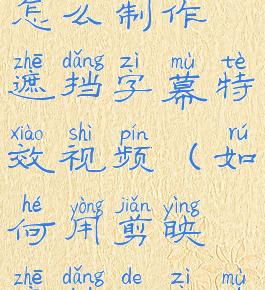 怎么制作
zhē dǎng zì mù tè
遮挡字幕特
xiào shì pín rú
效视频（如
hé yòng jiǎn yìng
何用剪映
zhē dǎng de zì mù